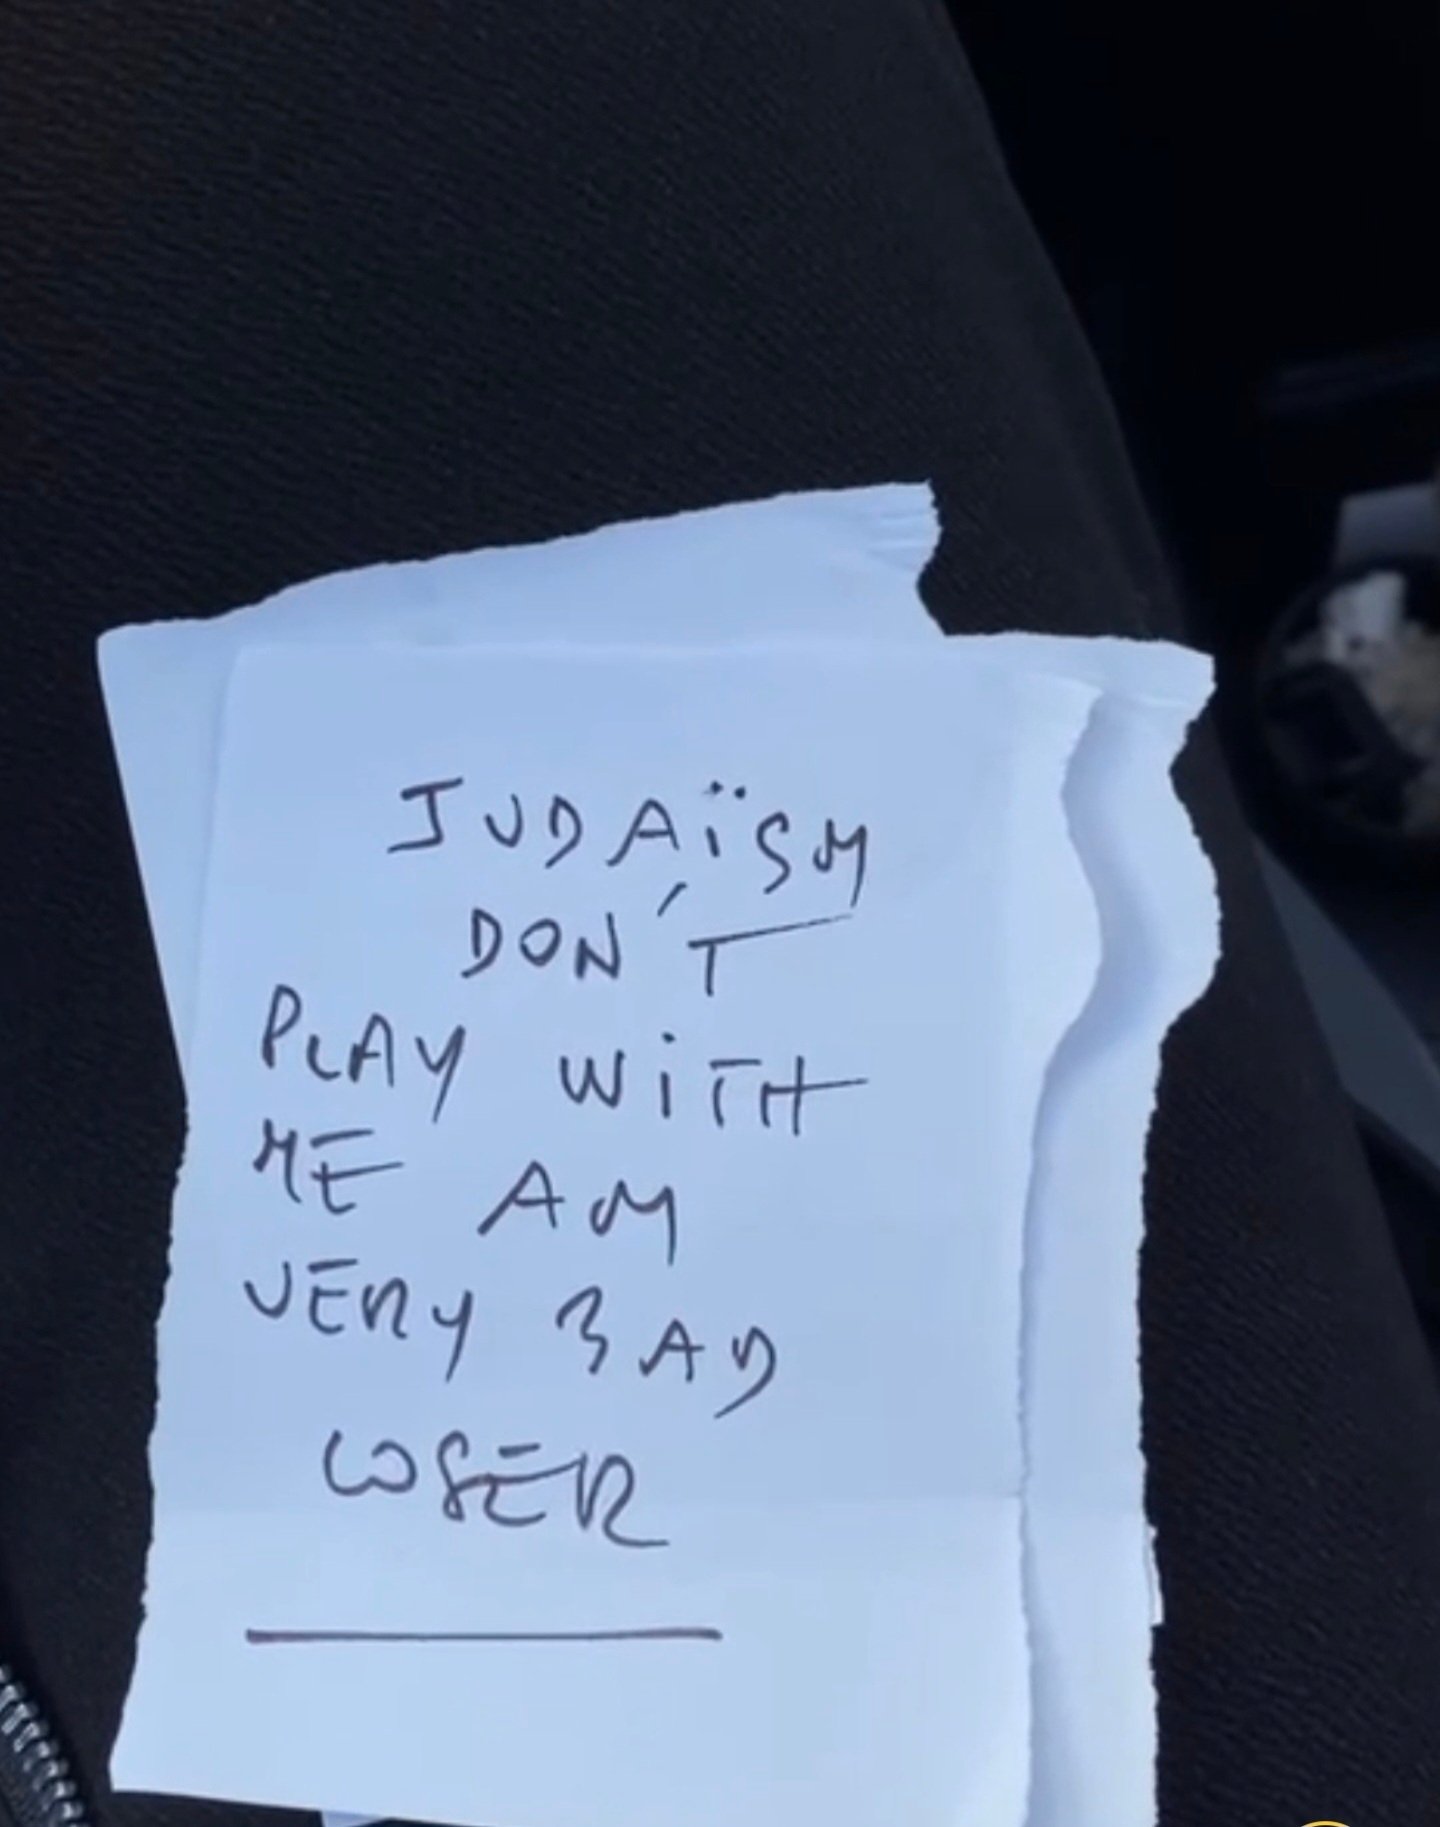 JUDAÏSM
DON'T
PLAY WiTH
ME AM
VERY BAD
LOSER